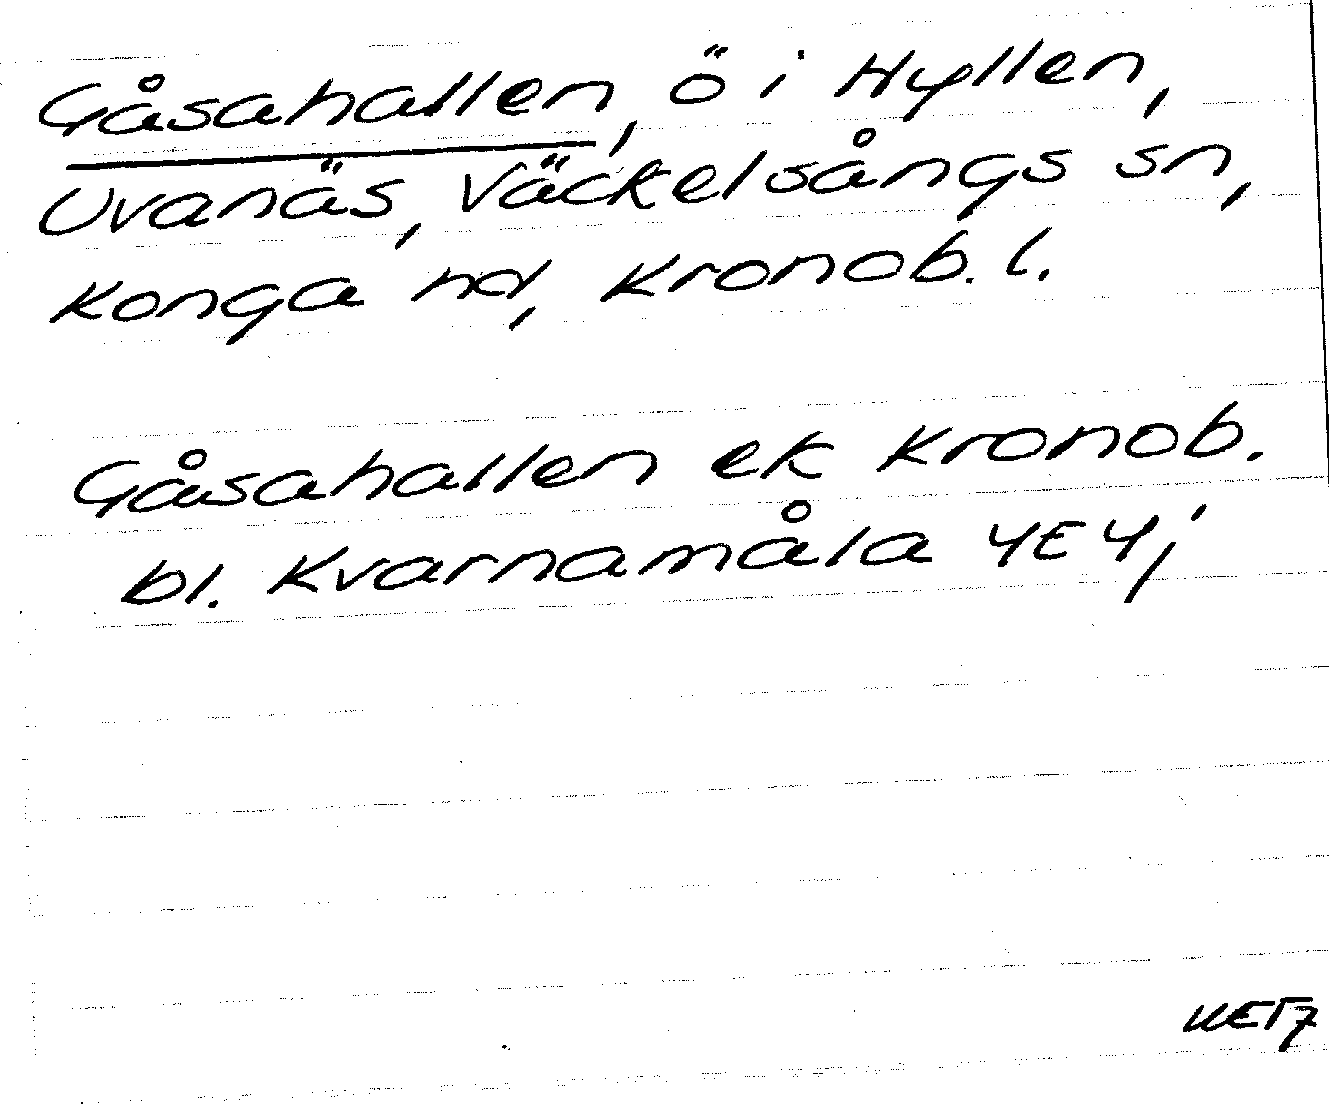 Gåsahallen, ö i Hyllen,
Uvanäs, Väckelsångs sn,
Konga hd, Kronob. l.
Gåsahallen ek Kronob.
bl. Kvarnamåla 4E4j